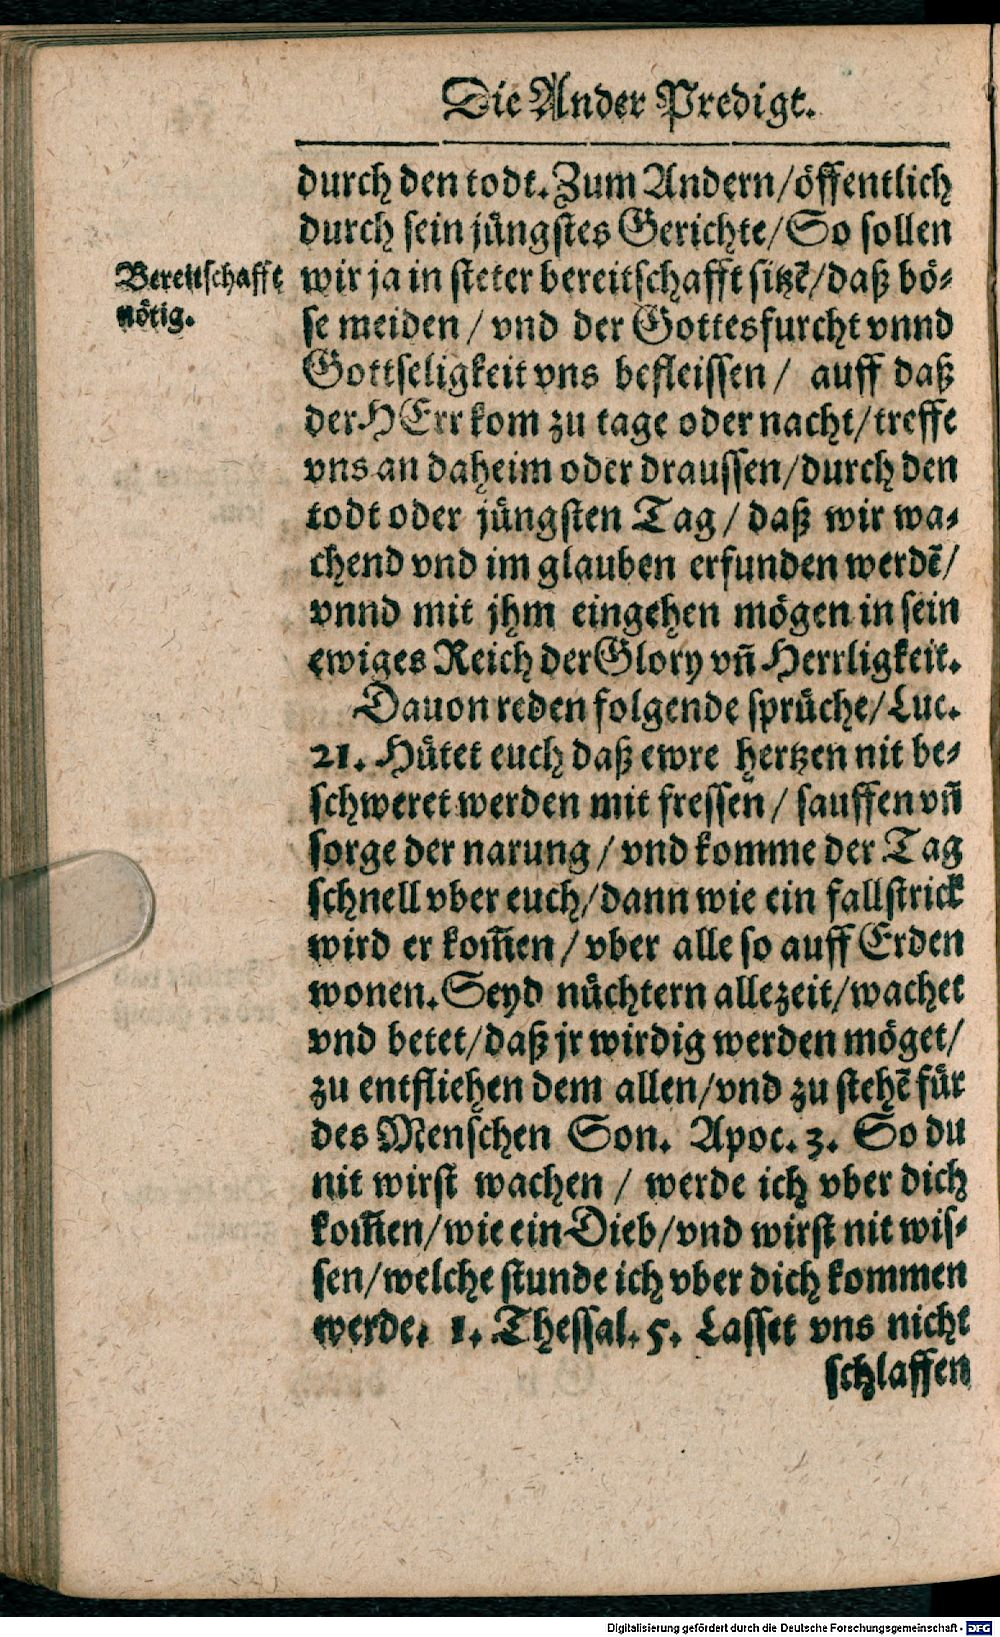 Die Ander Predigt.
durch den todt. Zum Andern/öffentlich
durch sein jüngstes Gerichte/So sollen
Bereitschafft
nötig.
wir ja in steter bereitschafft sitzẽ/daß bö-
se meiden / vnd der Gottesfurcht vnnd
Gottseligkeit vns befleissen / auff daß
der HErr kom zu tage oder nacht/treffe
vns an daheim oder draussen/durch den
todt oder jüngsten Tag / daß wir wa-
chend vnd im glauben erfunden werdẽ/
vnnd mit jhm eingehen mögen in sein
ewiges Reich der Glory vñ Herrligkeit.
Dauon reden folgende sprüche/Luc.
21. Hütet euch daß ewre hertzen nit be-
schweret werden mit fressen / sauffen vñ
sorge der narung / vnd komme der Tag
schnell vber euch/dann wie ein fallstrick
wird er kom̃en / vber alle so auff Erden
wonen. Seyd nüchtern allezeit/wachet
vnd betet/daß jr wirdig werden möget/
zu entfliehen dem allen/vnd zu stehẽ für
des Menschen Son. Apoc. 3. So du
nit wirst wachen / werde ich vber dich
kom̃en/wie ein Dieb/vnd wirst nit wis-
sen/welche stunde ich vber dich kommen
werde. 1. Thessal. 5. Lasset vns nicht
schlaffen
Digitalisierung gefördert durch die Deutsche Forschungsgemeinschaft - DFG